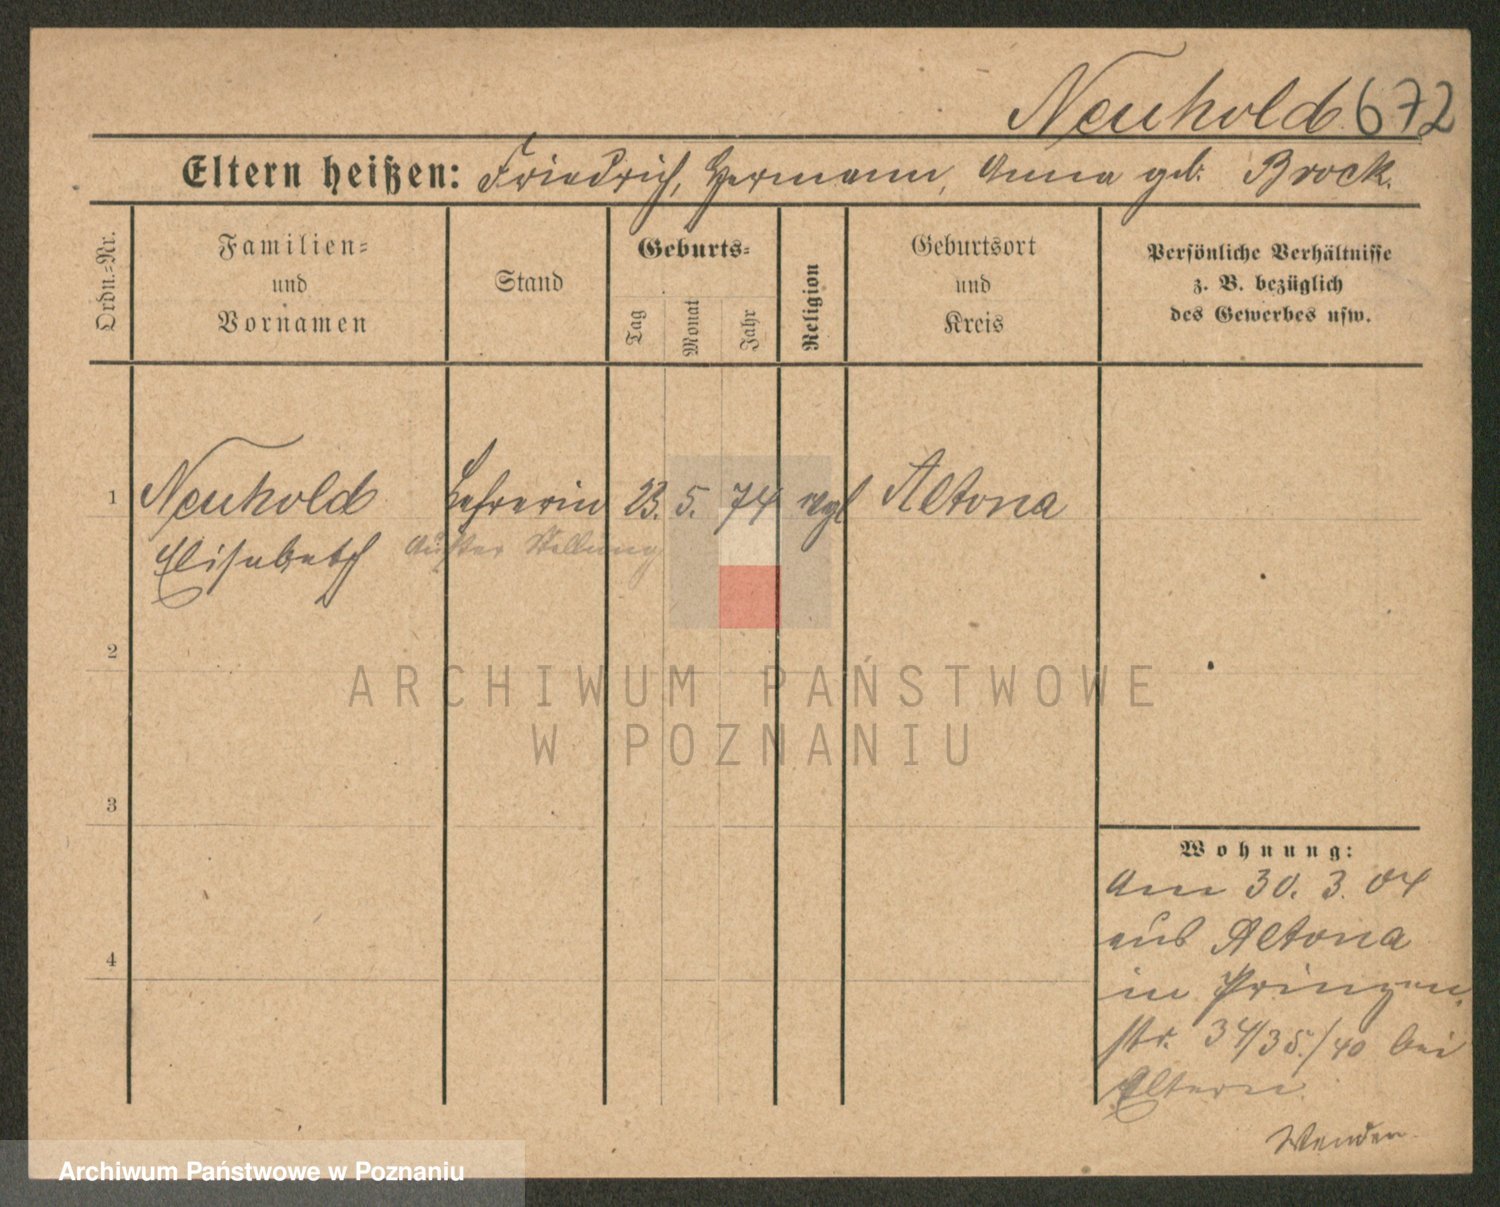 Neuhold 672
Eltern heißen: Friedrich, Hermann, Anna geb. Brock.
Ordn.-Nr.
Familien-
und
Vornamen
Stand
Geburts-
Tag
Monat
Jahr
Religion
Geburtsort
und
Kreis
Persönliche Verhältnisse
z. B. bezüglich
des Gewerbes usw.
1 Neuhold Lehrerin 23. 5. 74 evgl Altona
Elisabeth außer Stellung
2
3
4
Wohnung:
Am 30. 3. 04
aus Altona
in Prinzen
str. 34/35./40 bei
Eltern.
Wenden.
ARCHIWUM PAŃSTWOWE
W POZNANIU
Archiwum Państwowe w Poznaniu